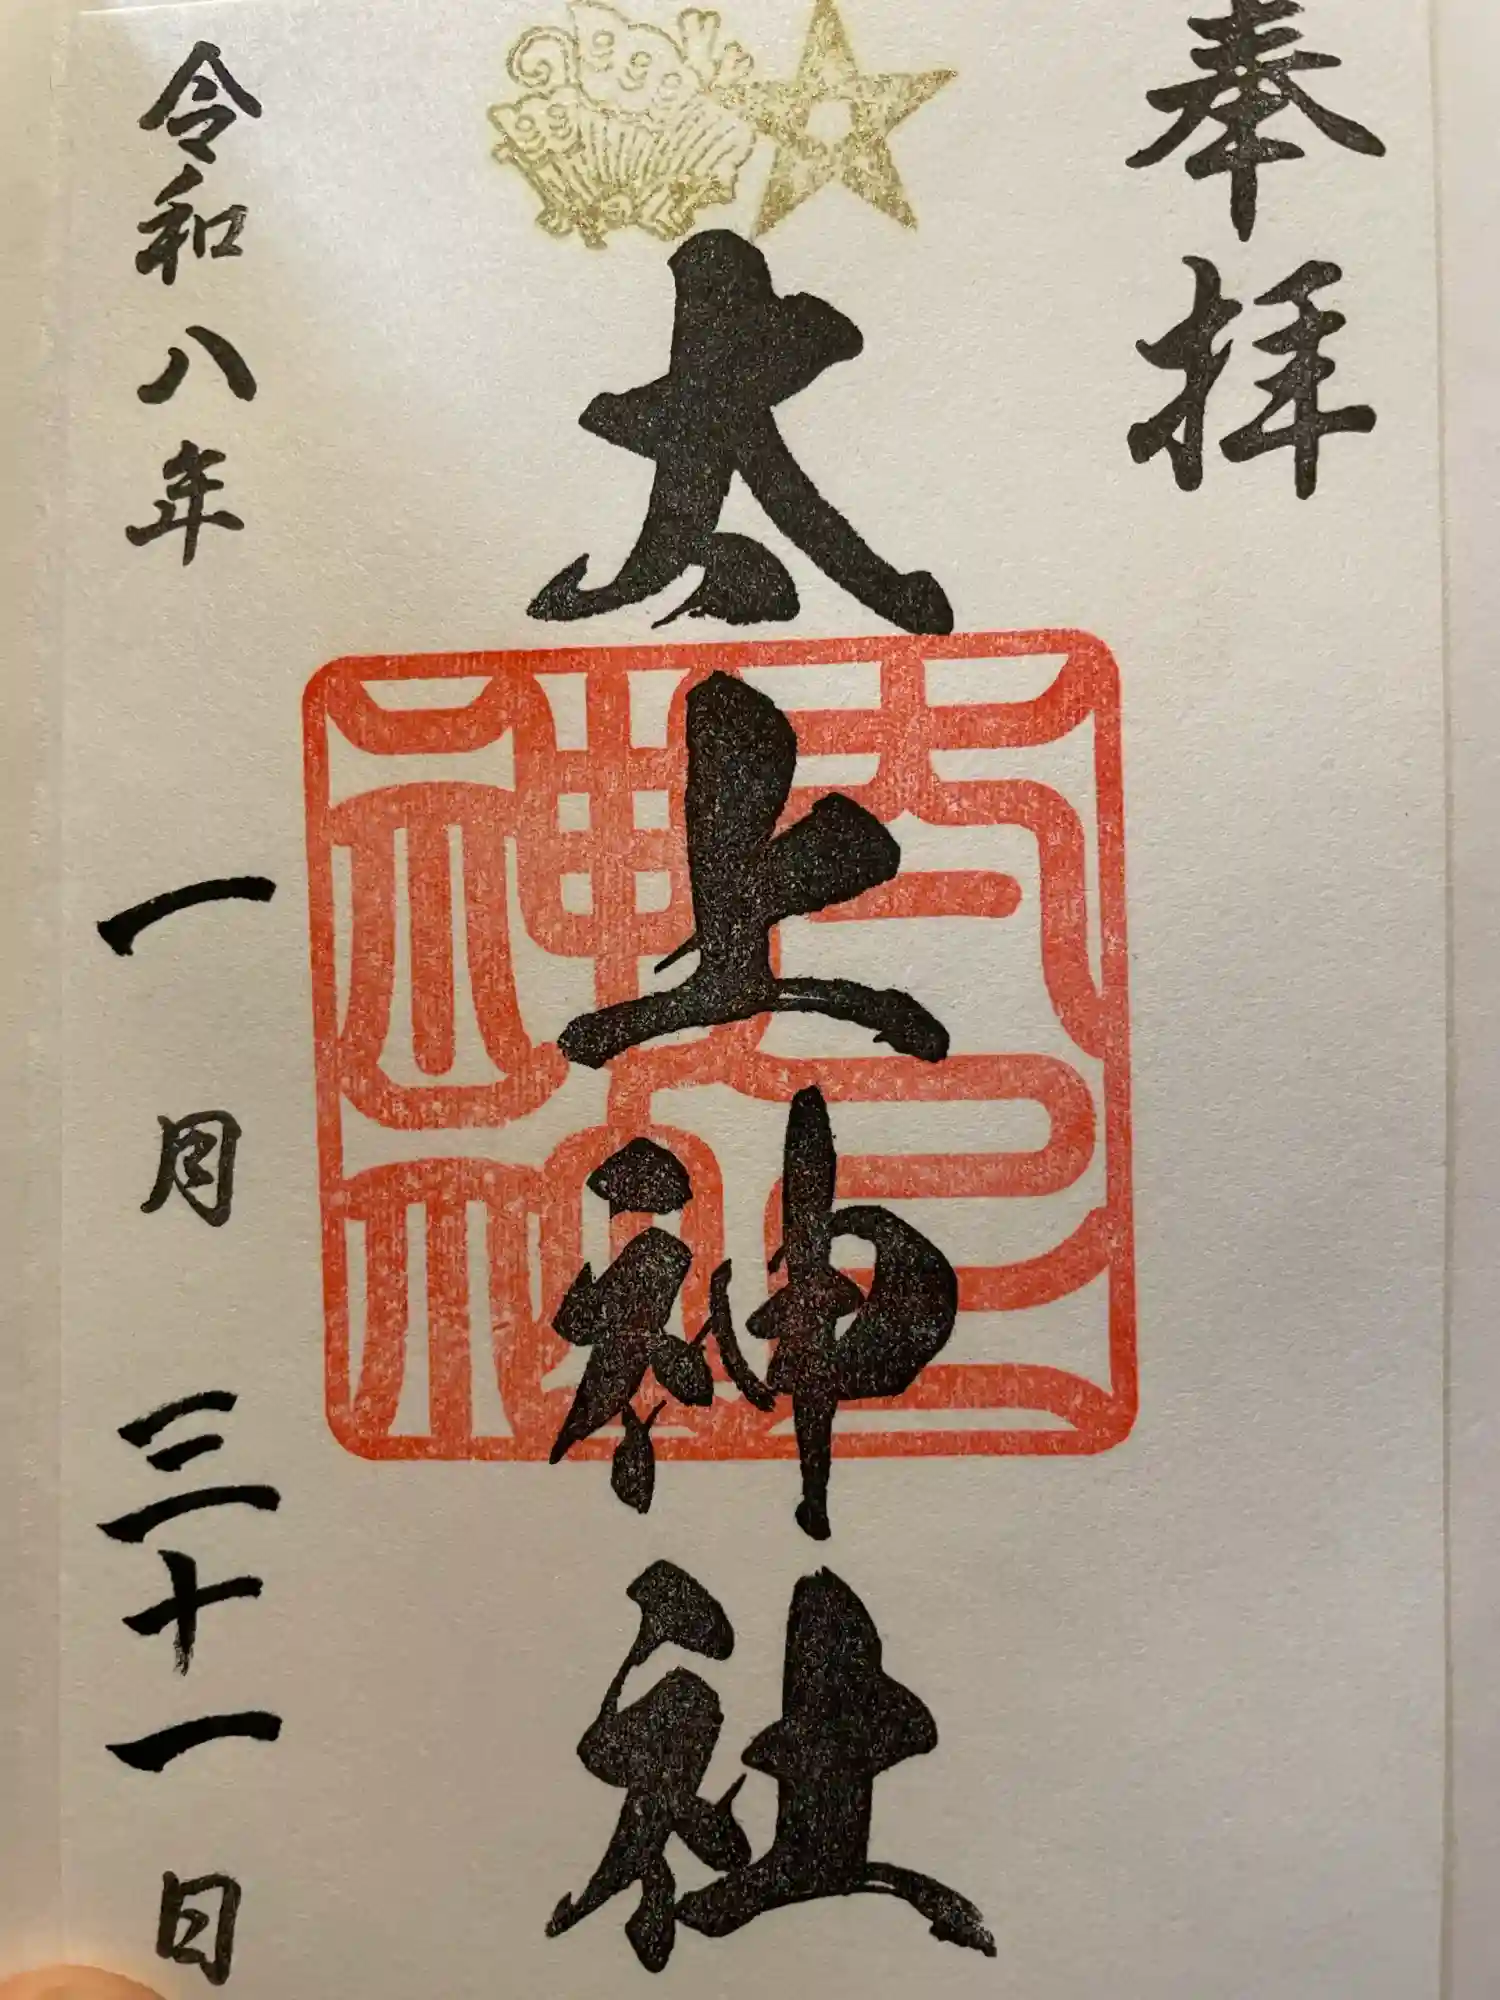 奉拝
太上神社
令和八年一月三十一日